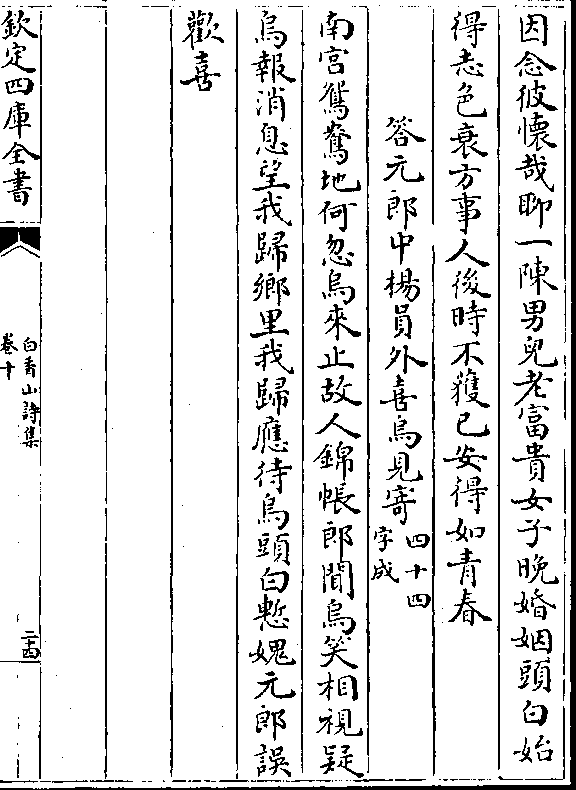 因念彼懷哉聊一陳男兒老富貴女子晚婚姻頭白始
得志色衰方事人後時不獲已安得如青春
答元郎中楊員外喜烏見寄四十四
字成
南宮鴛鴦地何忽烏來止故人錦帳郎聞烏笑相視疑
烏報消息望我歸鄉里我歸應待烏頭白慙媿元郎誤
歡喜
欽定四庫全書
白香山詩集
卷十
二十四